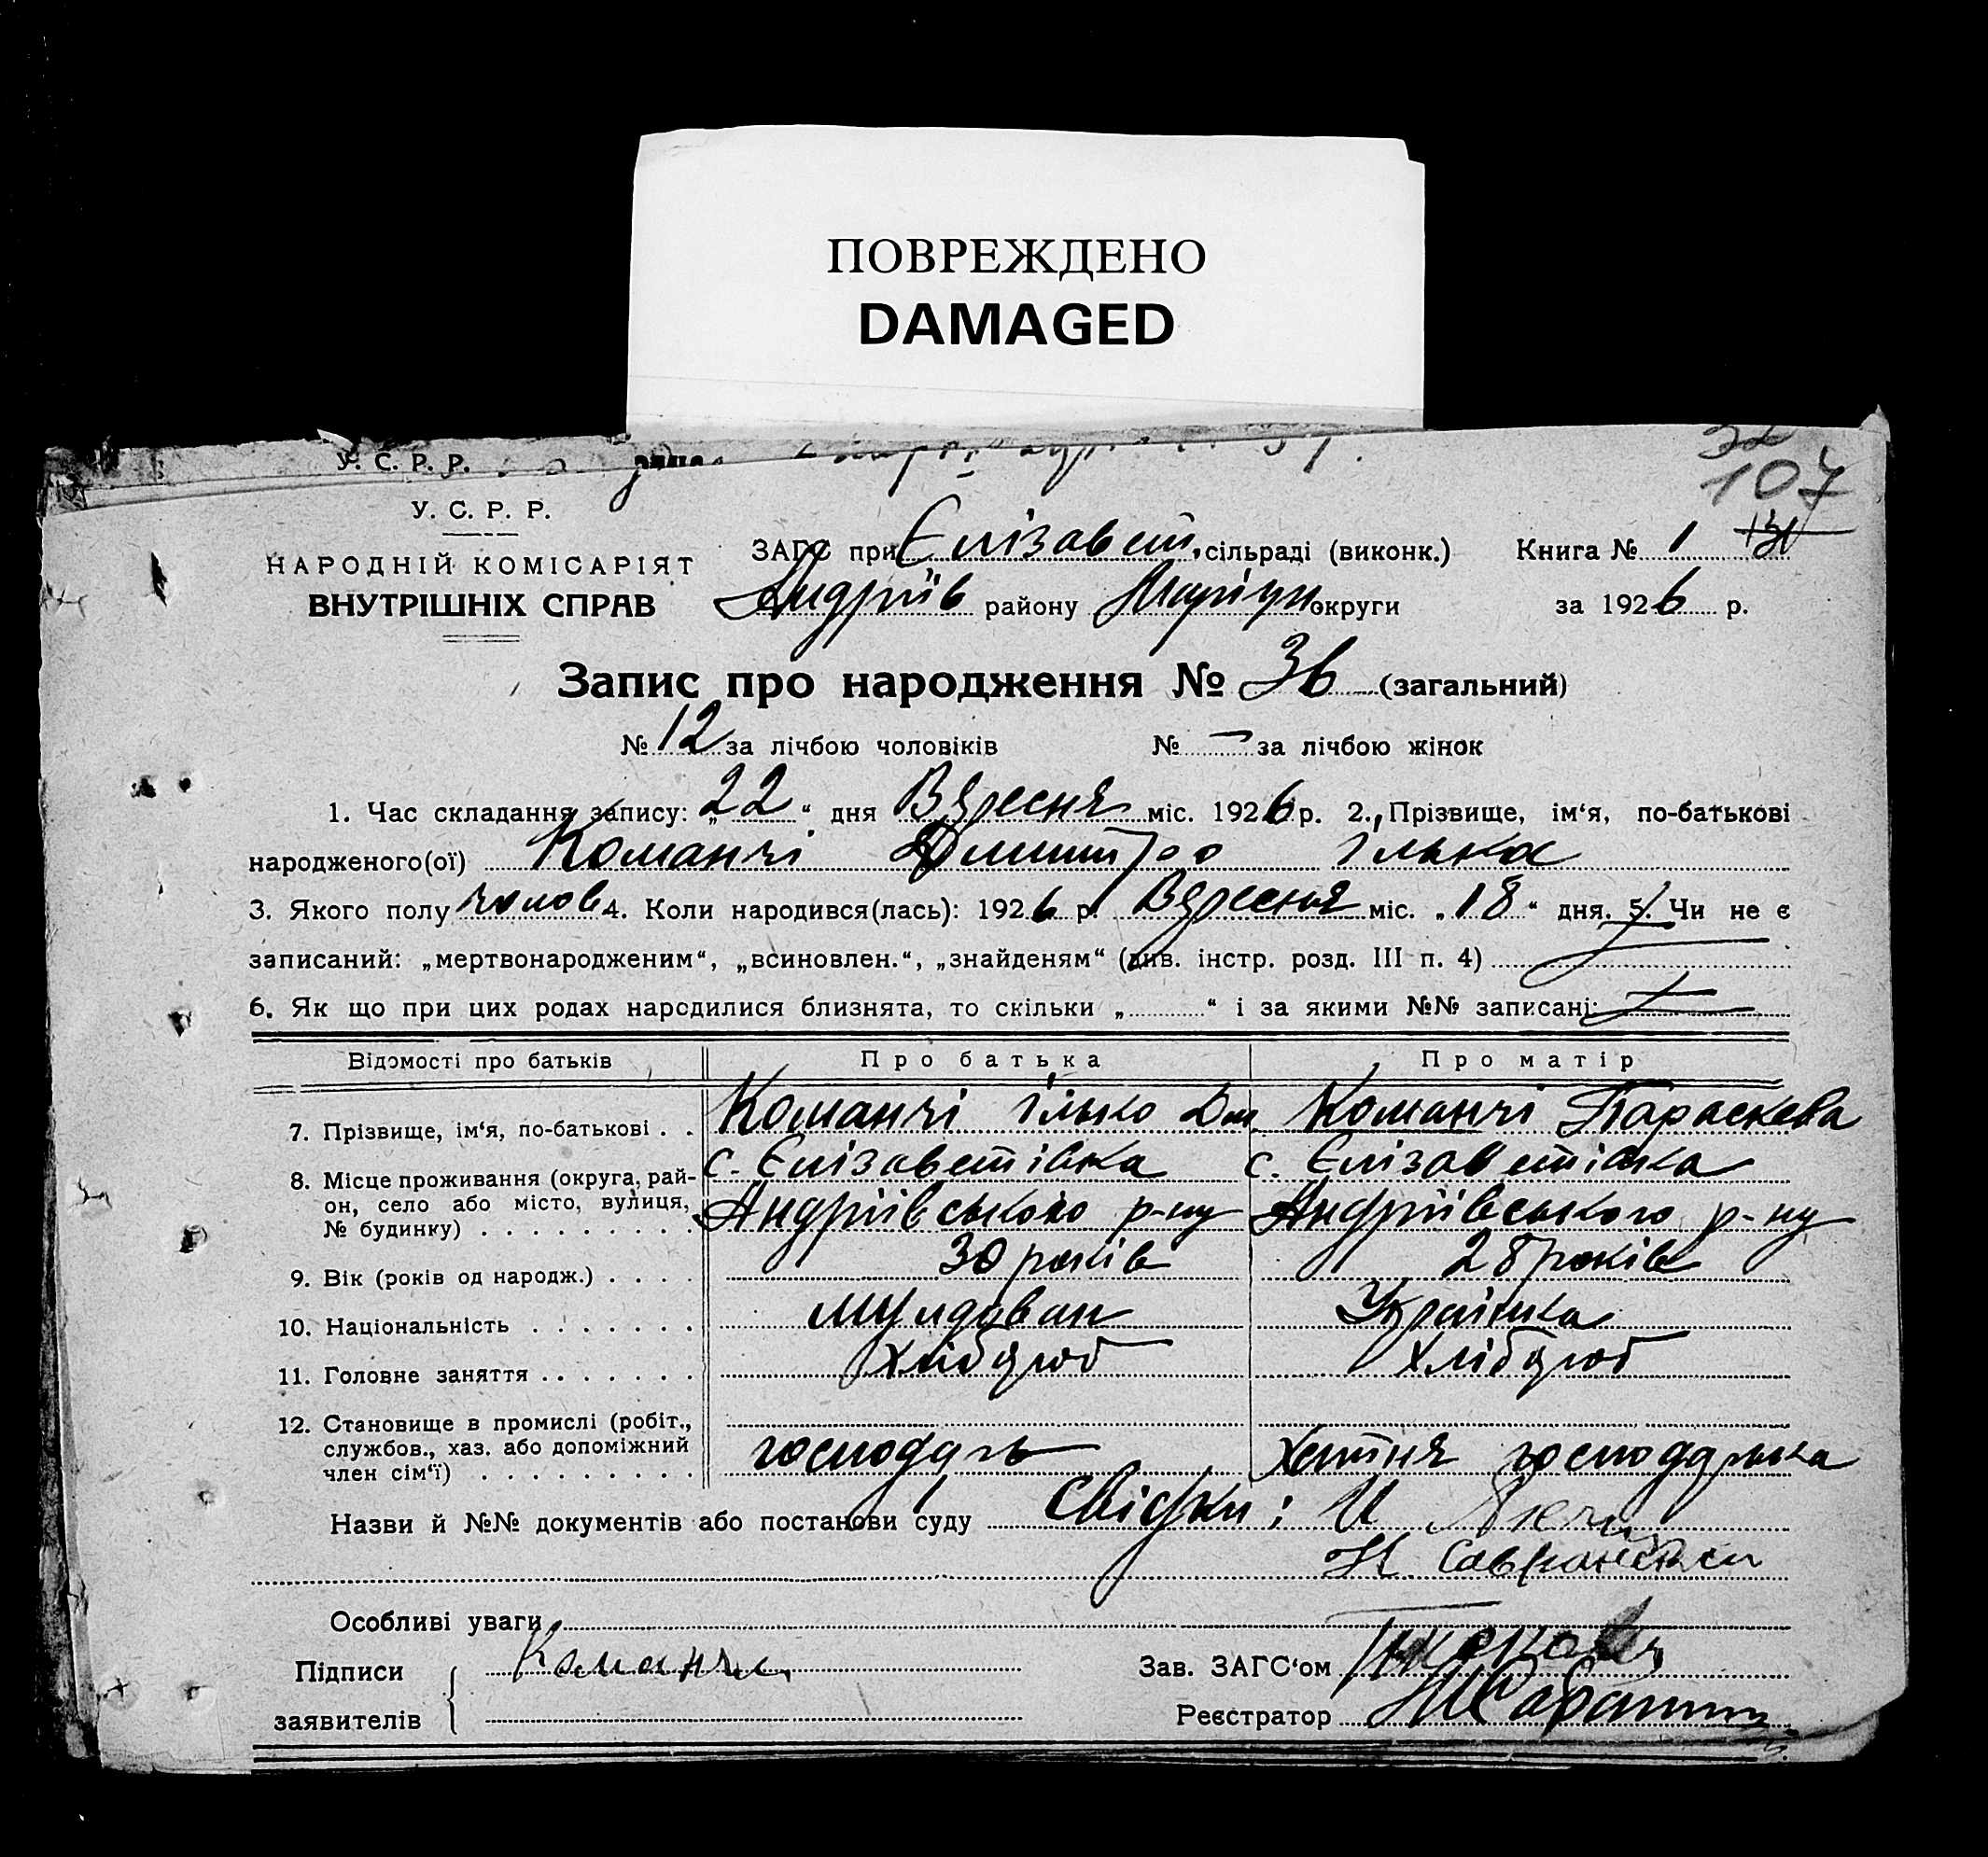 ПОВРЕЖДЕНО
DAMAGED
У. С. Р. Р.
107
У. С. Р. Р.
НАРОДНІЙ КОМІСАРІЯТ
ВНУТРІШНІХ СПРАВ
ЗАГС при Єлізавет. сільраді (виконк.) Книга № 1
Андріїв району Маріуп округи за 1926 р.
Запис про народження № 36 (загальний)
№ 12 за лічбою чоловіків № – за лічбою жінок
1. Час складання запису: „22“ дня Вересня міс. 1926 р. 2. Прізвище, ім‘я, по-батькові
народженого(ої) Команчі Дмитро Ілька
3. Якого полу чолов 4. Коли народився(лась): 1926 р. Вересня міс. „18“ дня. 5. Чи не є
записаний: „мертвонародженим“, „всиновлен.“, „знайденям“ (див. інстр. розд. III п. 4)
6. Як що при цих родах народилися близнята, то скільки „........“ і за якими №№ записані:
Відомості про батьків Про батька Про матір
7. Прізвище, ім‘я, по-батькові . . Команчі Ілько Дм. Команчі Параскева
8. Місце проживання (округа, рай- с. Єлізаветівка с. Єлізаветівка
он, село або місто, вулиця, Андріївського р-ну Андріївського р-ну
№ будинку) . . . . . . . . .
9. Вік (років од народж.) . . . . 30 років 28 років
10. Національність . . . . . . . Мулдован Українка
11. Головне заняття . . . . . . . Хлібороб Хлібороб
12. Становище в промислі (робіт.,
службов., хаз. або допоміжний господарь Хатня господарька
член сім‘ї) . . . . . . . . .
Назви й №№ документів або постанови суду Свідки: И
Н.
Особливі уваги
Підписи Команчи Зав. ЗАГС‘ом
заявителів Реєстратор